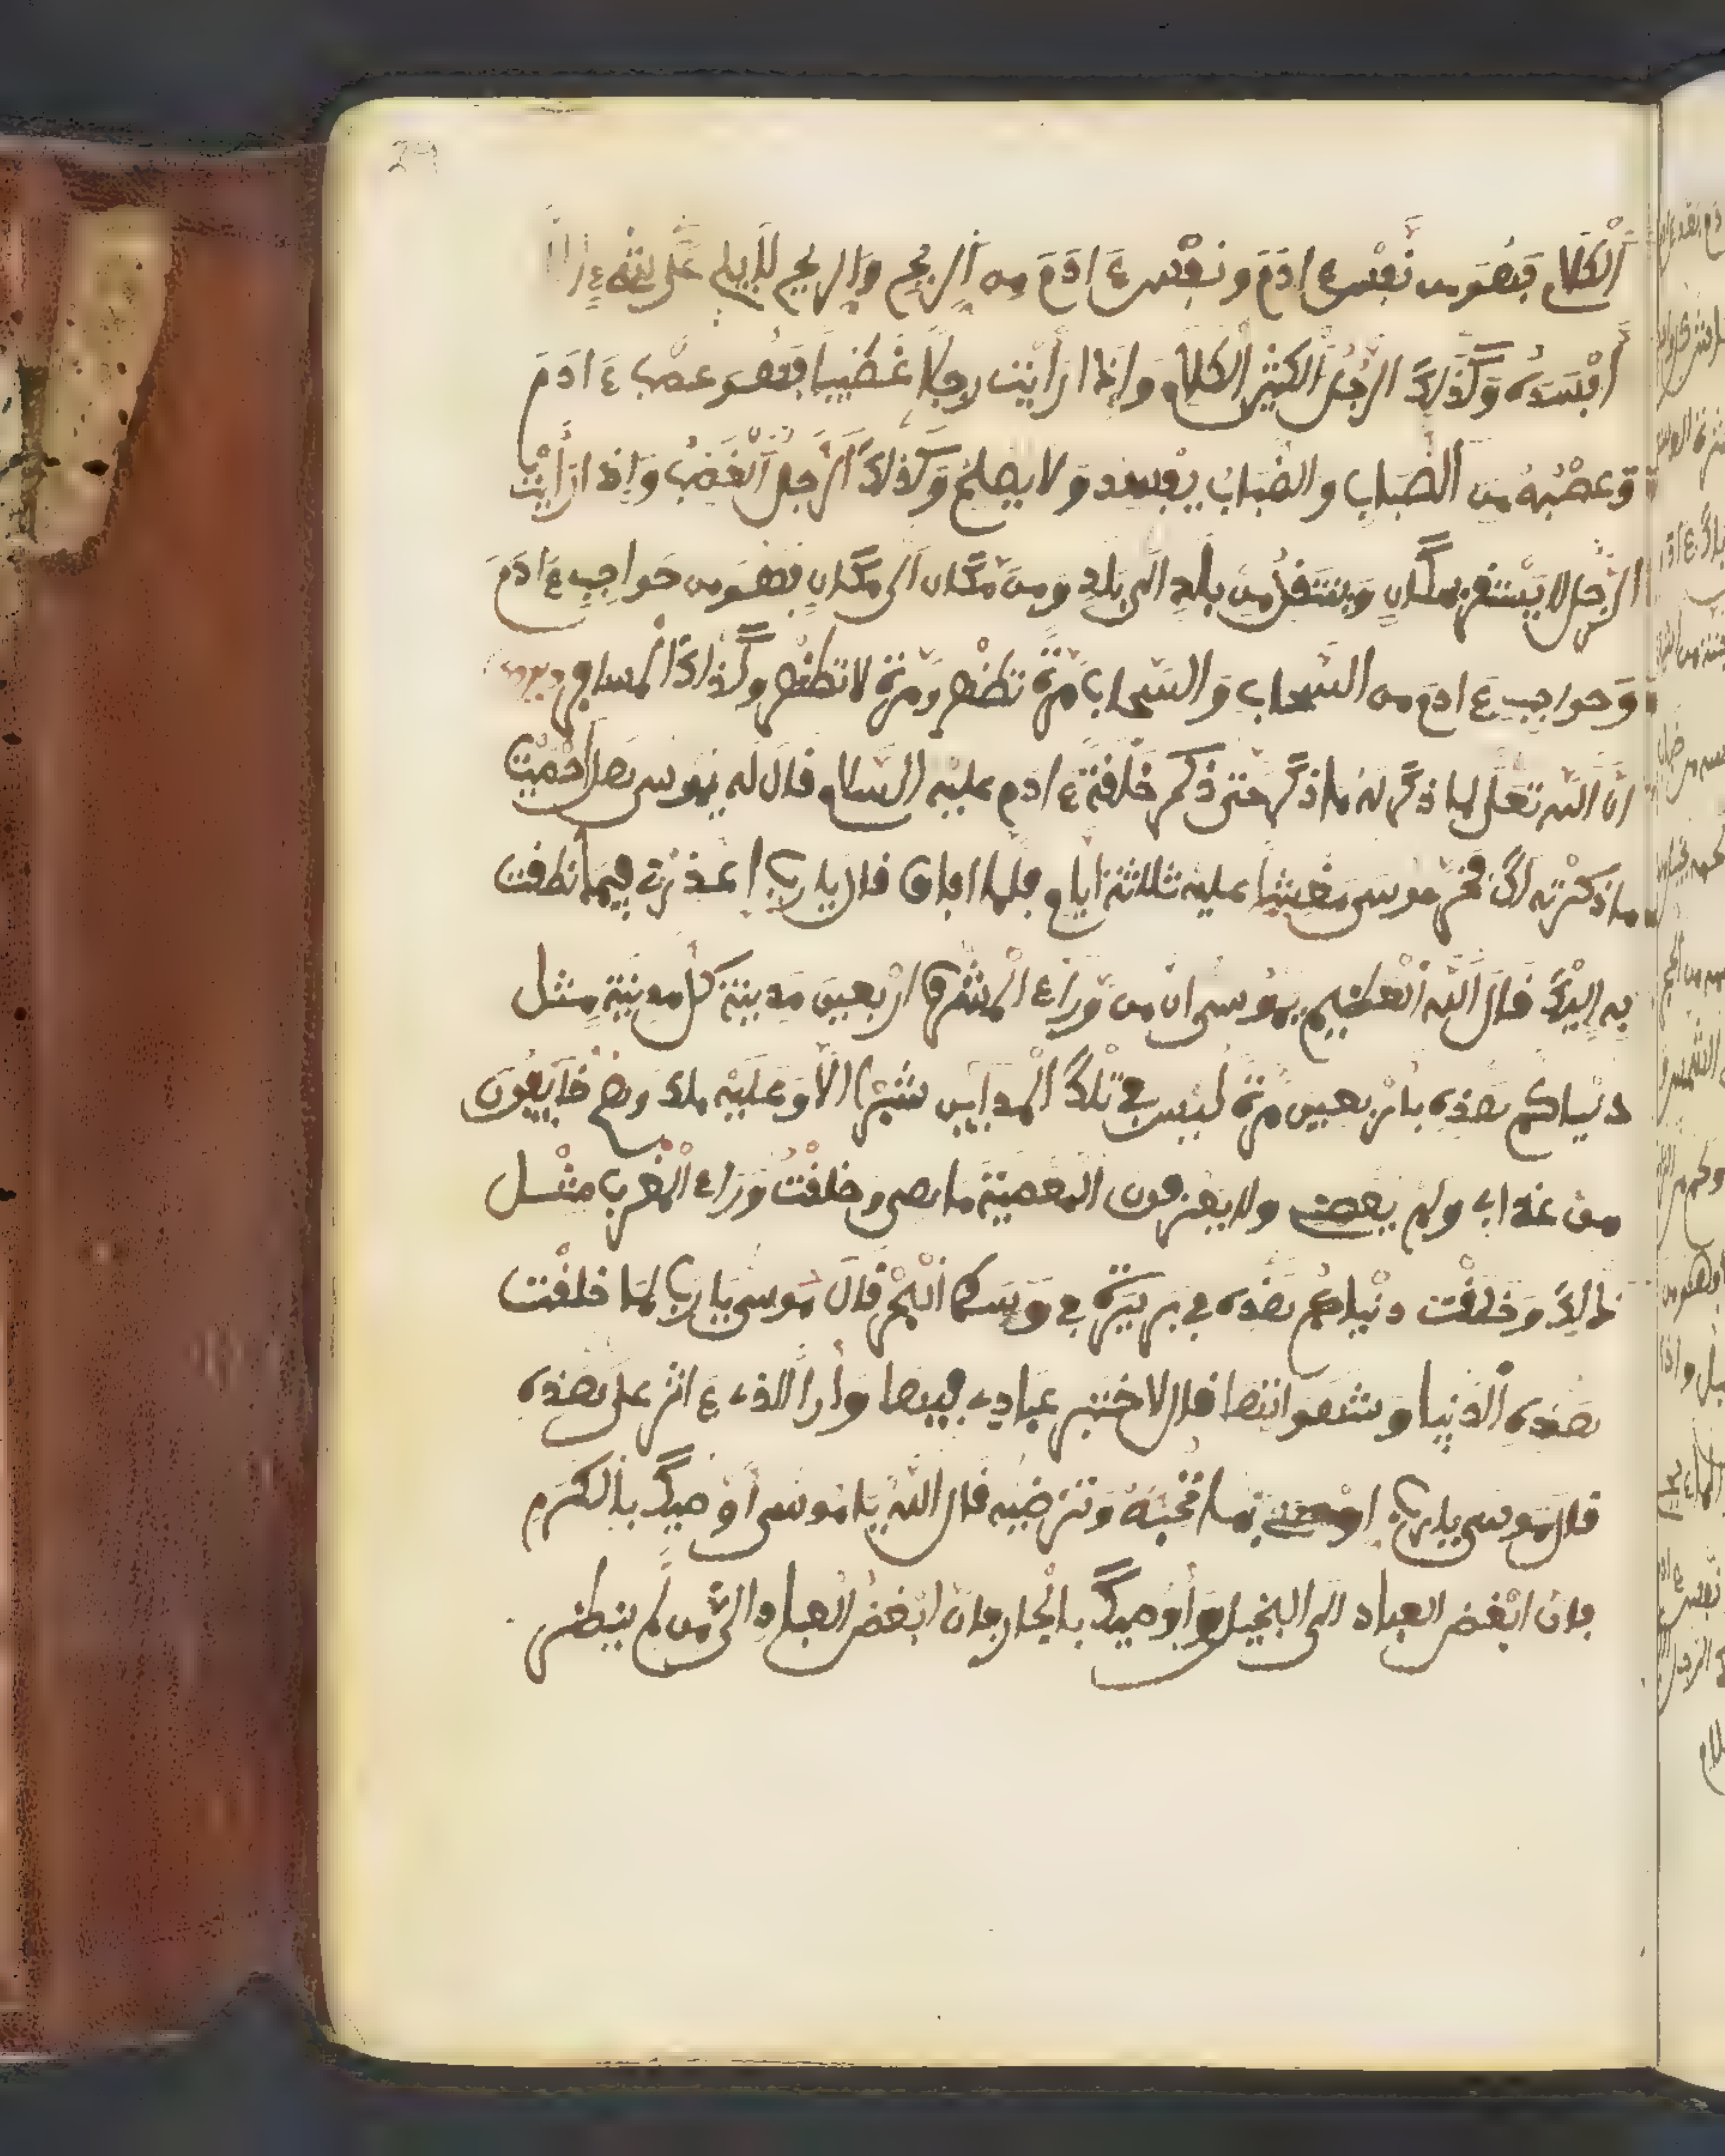 الكلام فهو من نفس ءادم ونفس ءادم من الريح والريح
افسده وكذلك الرجل الكثير الكلام واذا رأيت رجلا غضيبا فهو عصب ءادم
وعصبه من الضباب والضباب يفسد ولا يصلح وكذلك الرجل الغضب واذا رأيت
الرجل لا يستفر بمكان وينتفل من بلد الى بلد ومن مكان الى مكان فهو من حواجب ءادم
وحواجب ءادم من السحاب والسحاب مرة تظهر ومرة لا تظهر وكذلك المسافر
ان الله تعلى لما ذكر له ما ذكر حتى ذكر خلفة ءادم عليه السلام قال له يموسى هل احصيت
ما ذكرته لك فخر موسى مغشيا عليه ثلاثة ايام فلما افاق قال يا رب اعذرني فيما نطفت
به اليك قال الله العظيم يموسى ان من وراء المشرق اربعين مدينة كل مدينة مثل
دنياكم هذه باربعين مرة ليس في تلك المداين شبرا الا وعليه ملك وهم خايفون
من عذاب ولم يعص ولا يعرفون المعصية ما هي وخلفت وراء المغرب مثل
ذالك وخلفت دنياكم هذه في برية في وسط البحر قال موسى يا رب لما خلفت
هذه الدنيا وشهواتها قال لاختبر عبادي فيها وارا الذي ءاثر على هذه
قال موسى يا رب بما تحبه وترضيه قال الله يا موسى أوصيك بالكرم
فان ابغض العباد الى البخيل وأوصيك بالجار فان ابغض العباد الى من لم ينظر